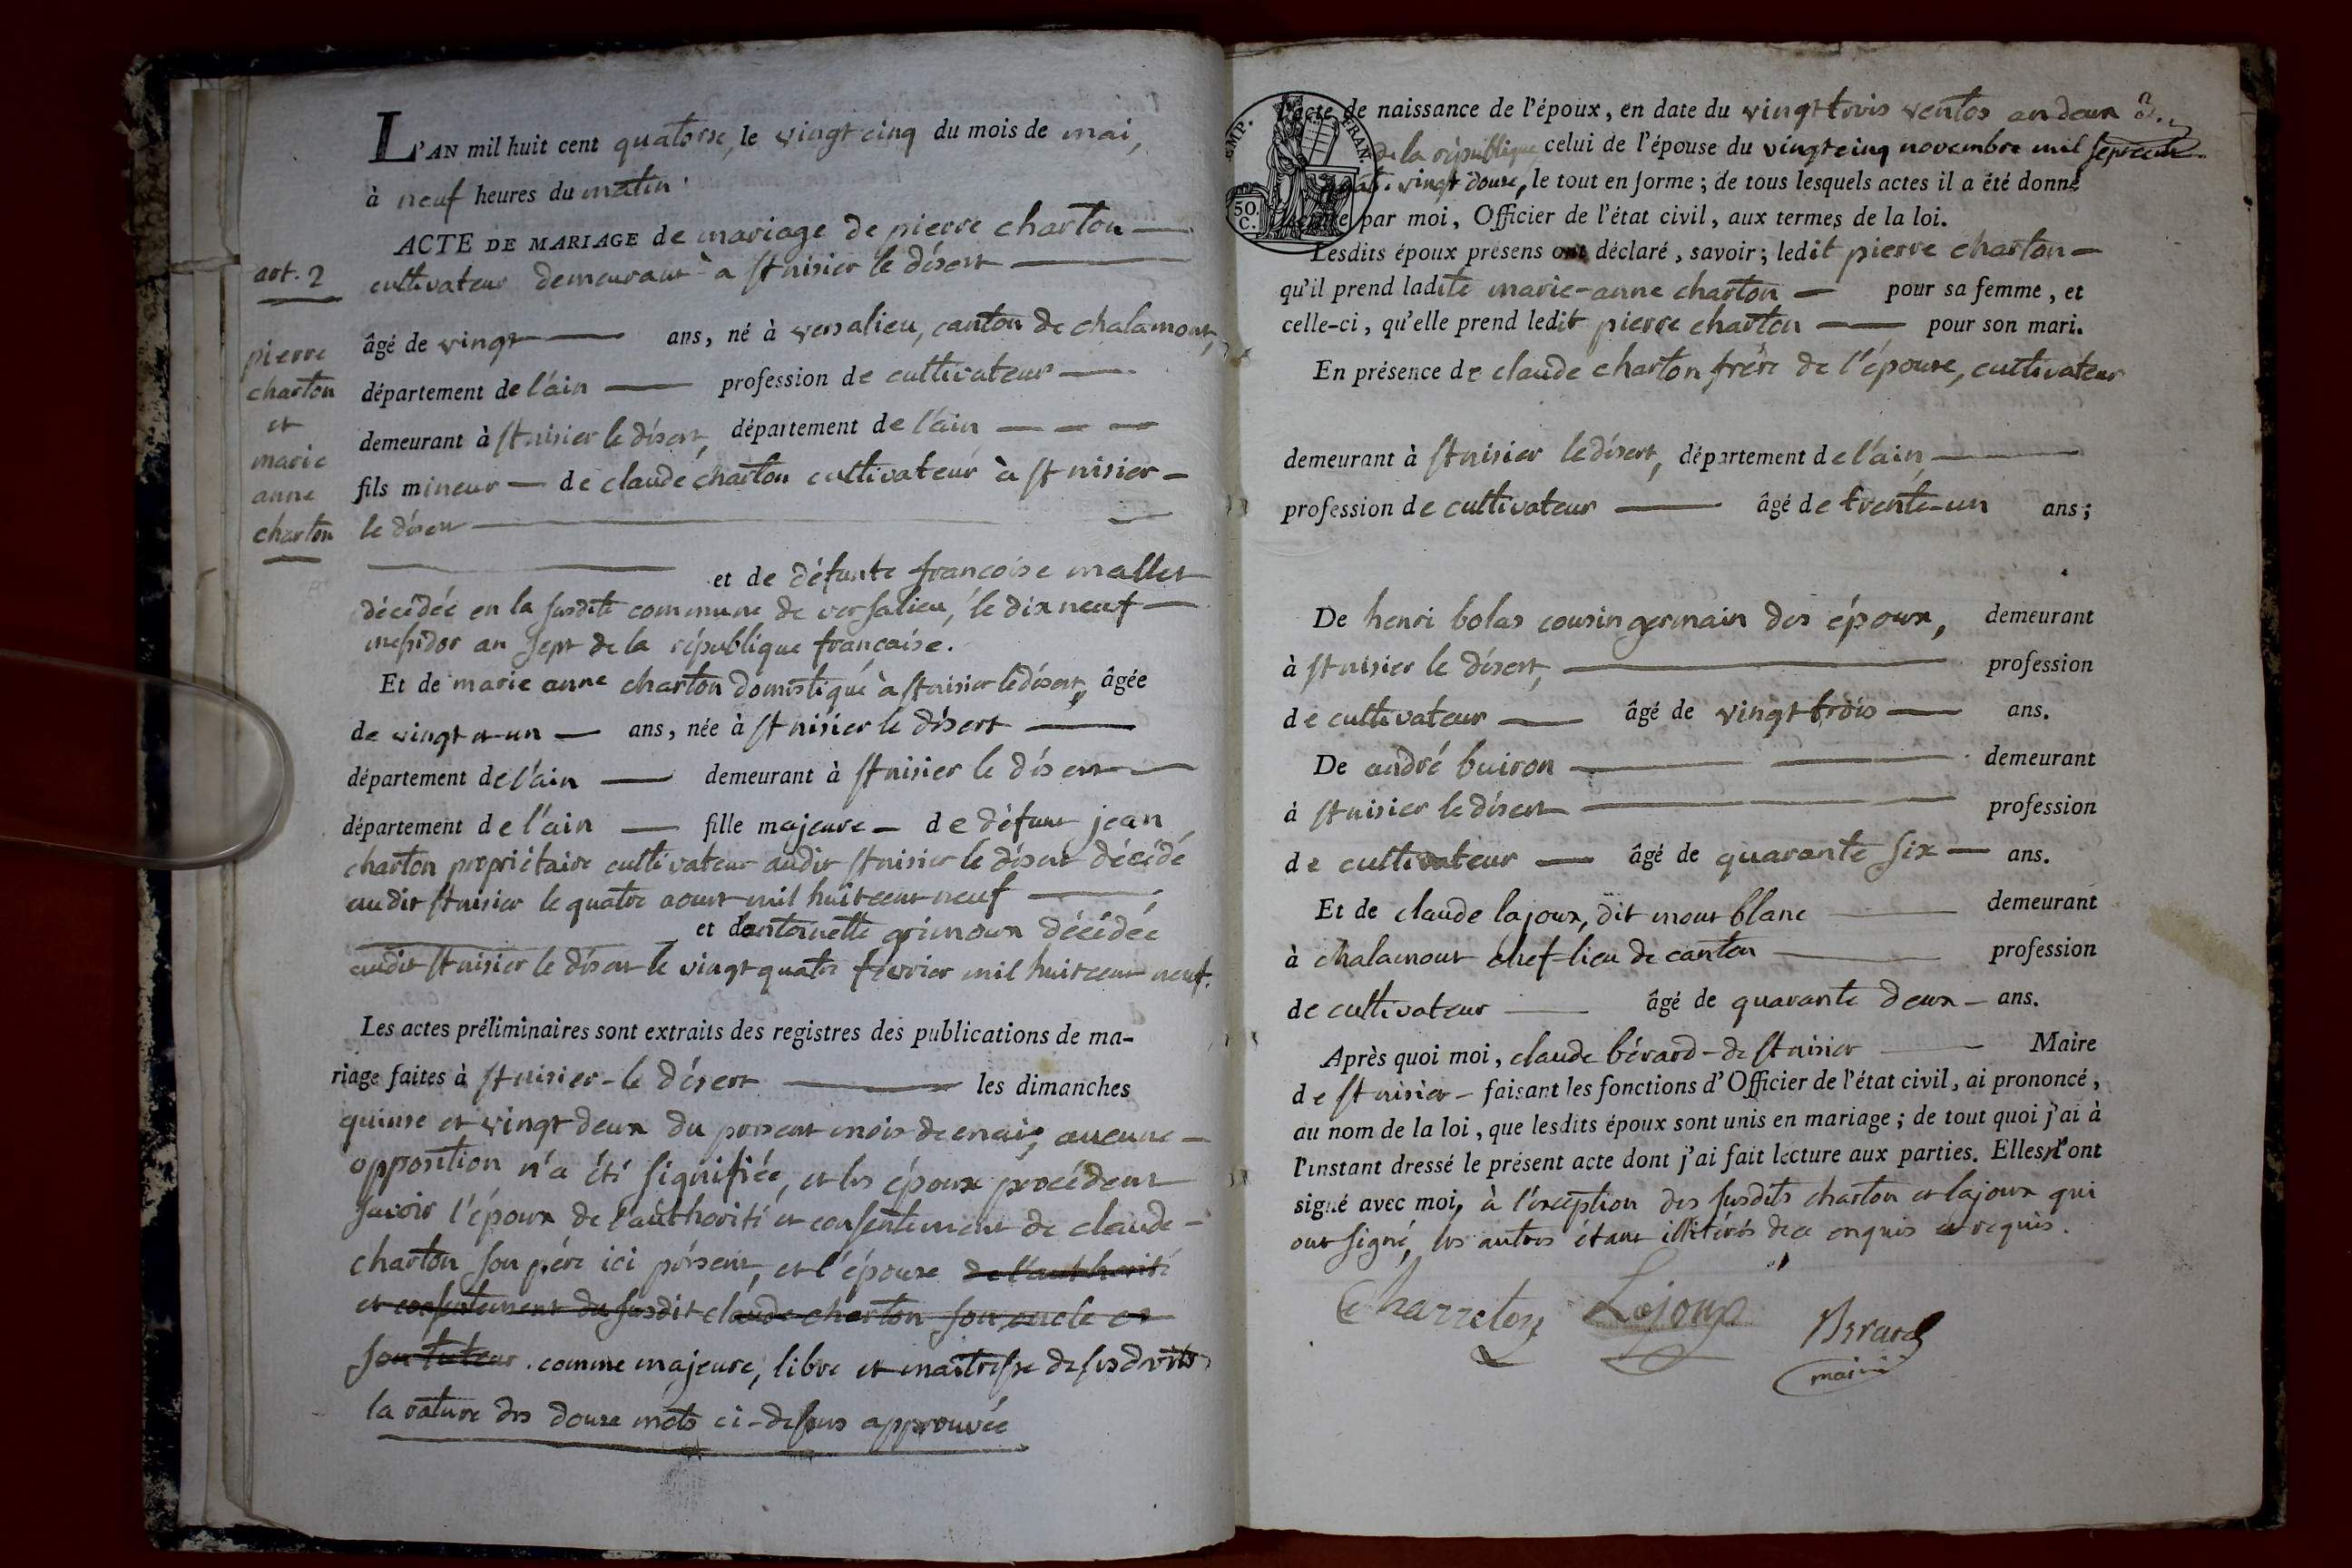 L'AN mil huit cent quatorse, le vingt cinq du mois de mai,
à neuf heures du matin.
ACTE DE MARIAGE de mariage de pierre charton —
art. 2
cultivateur demeurant à a st nisier le désert —
âgé de vingt — ans, né à versalieu, canton de chalamont,
pierre
charton
et
marie
anne
charton
département de l'ain — profession de cultivateur —
demeurant à st nisier le désert, département de l'ain — — —
fils mineur — de claude charton cultivateur à st nisier —
le désert —
et de défunte françoise mallet
décédée en la susdite commune de versalieu, le dix neuf —
messidor an sept de la république française.
Et de marie anne charton domestique à st nisier le désert, âgée
de vingt et un — ans, née à st nisier le désert —
département de l'ain — demeurant à st nisier le désert —
département de l'ain — fille majeure — de défunt jean
charton propriétaire cultivateur audit st nisier le désert décédé
audit st nisier le quatre aout mil huit cent neuf —,
et d'antoinette grimoux décédée
audit st nisier le désert le vingt quatre février mil huit cent neuf.
Les actes préliminaires sont extraits des registres des publications de ma-
riage faites à st nisier-le désert — les dimanches
quinse et vingt deux du présent mois de mai, aucune —
opposition n'a été signifiée, et les époux procédent
savoir l'époux de l'authorité et consentement de claude —
charton son père ici présent, et l'épouse de l'authorité
et consentement du susdit claude charton son oncle et
son tuteur. comme majeure, libre et maitresse de ses droits
la rature des douse mots ci-dessus approuvée
l'acte de naissance de l'époux, en date du vingt trois ventos an deux 3.
de la république celui de l'épouse du vingt cinq novembre mil sept cent
quat. vingt douse, le tout en forme ; de tous lesquels actes il a été donné
lecture par moi, Officier de l'état civil, aux termes de la loi.
TIMP. FRAN.
50.
C.
Lesdits époux présens ont déclaré, savoir ; ledit pierre charton —
qu'il prend ladite marie-anne charton — pour sa femme, et
celle-ci, qu'elle prend ledit pierre charton — pour son mari.
En présence de claude charton frère de l'épouse, cultivateur
demeurant à st nisier le désert, département de l'ain —
profession de cultivateur — âgé de trente-un ans ;
De henri bolas cousin germain des époux, demeurant
à st nisier le désert, — profession
de cultivateur — âgé de vingt trois — ans.
De andré buiron — demeurant
à st nisier le désert — profession
de cultivateur — âgé de quarante six — ans.
Et de claude lajoux, dit mont blanc — demeurant
à chalamont chef-lieu de canton — profession
de cultivateur — âgé de quarante deux — ans.
Après quoi moi, claude bérard-de st nisier — Maire
de st nisier — faisant les fonctions d'Officier de l'état civil, ai prononcé,
au nom de la loi, que lesdits époux sont unis en mariage ; de tout quoi j'ai à
l'instant dressé le présent acte dont j'ai fait lecture aux parties. Elles l'ont
signé avec moi, à l'exception des susdits charton et lajoux qui
ont signé, les autres étant illitérés de ce enquis et requis.
Charreton Lajoux Berard
maire